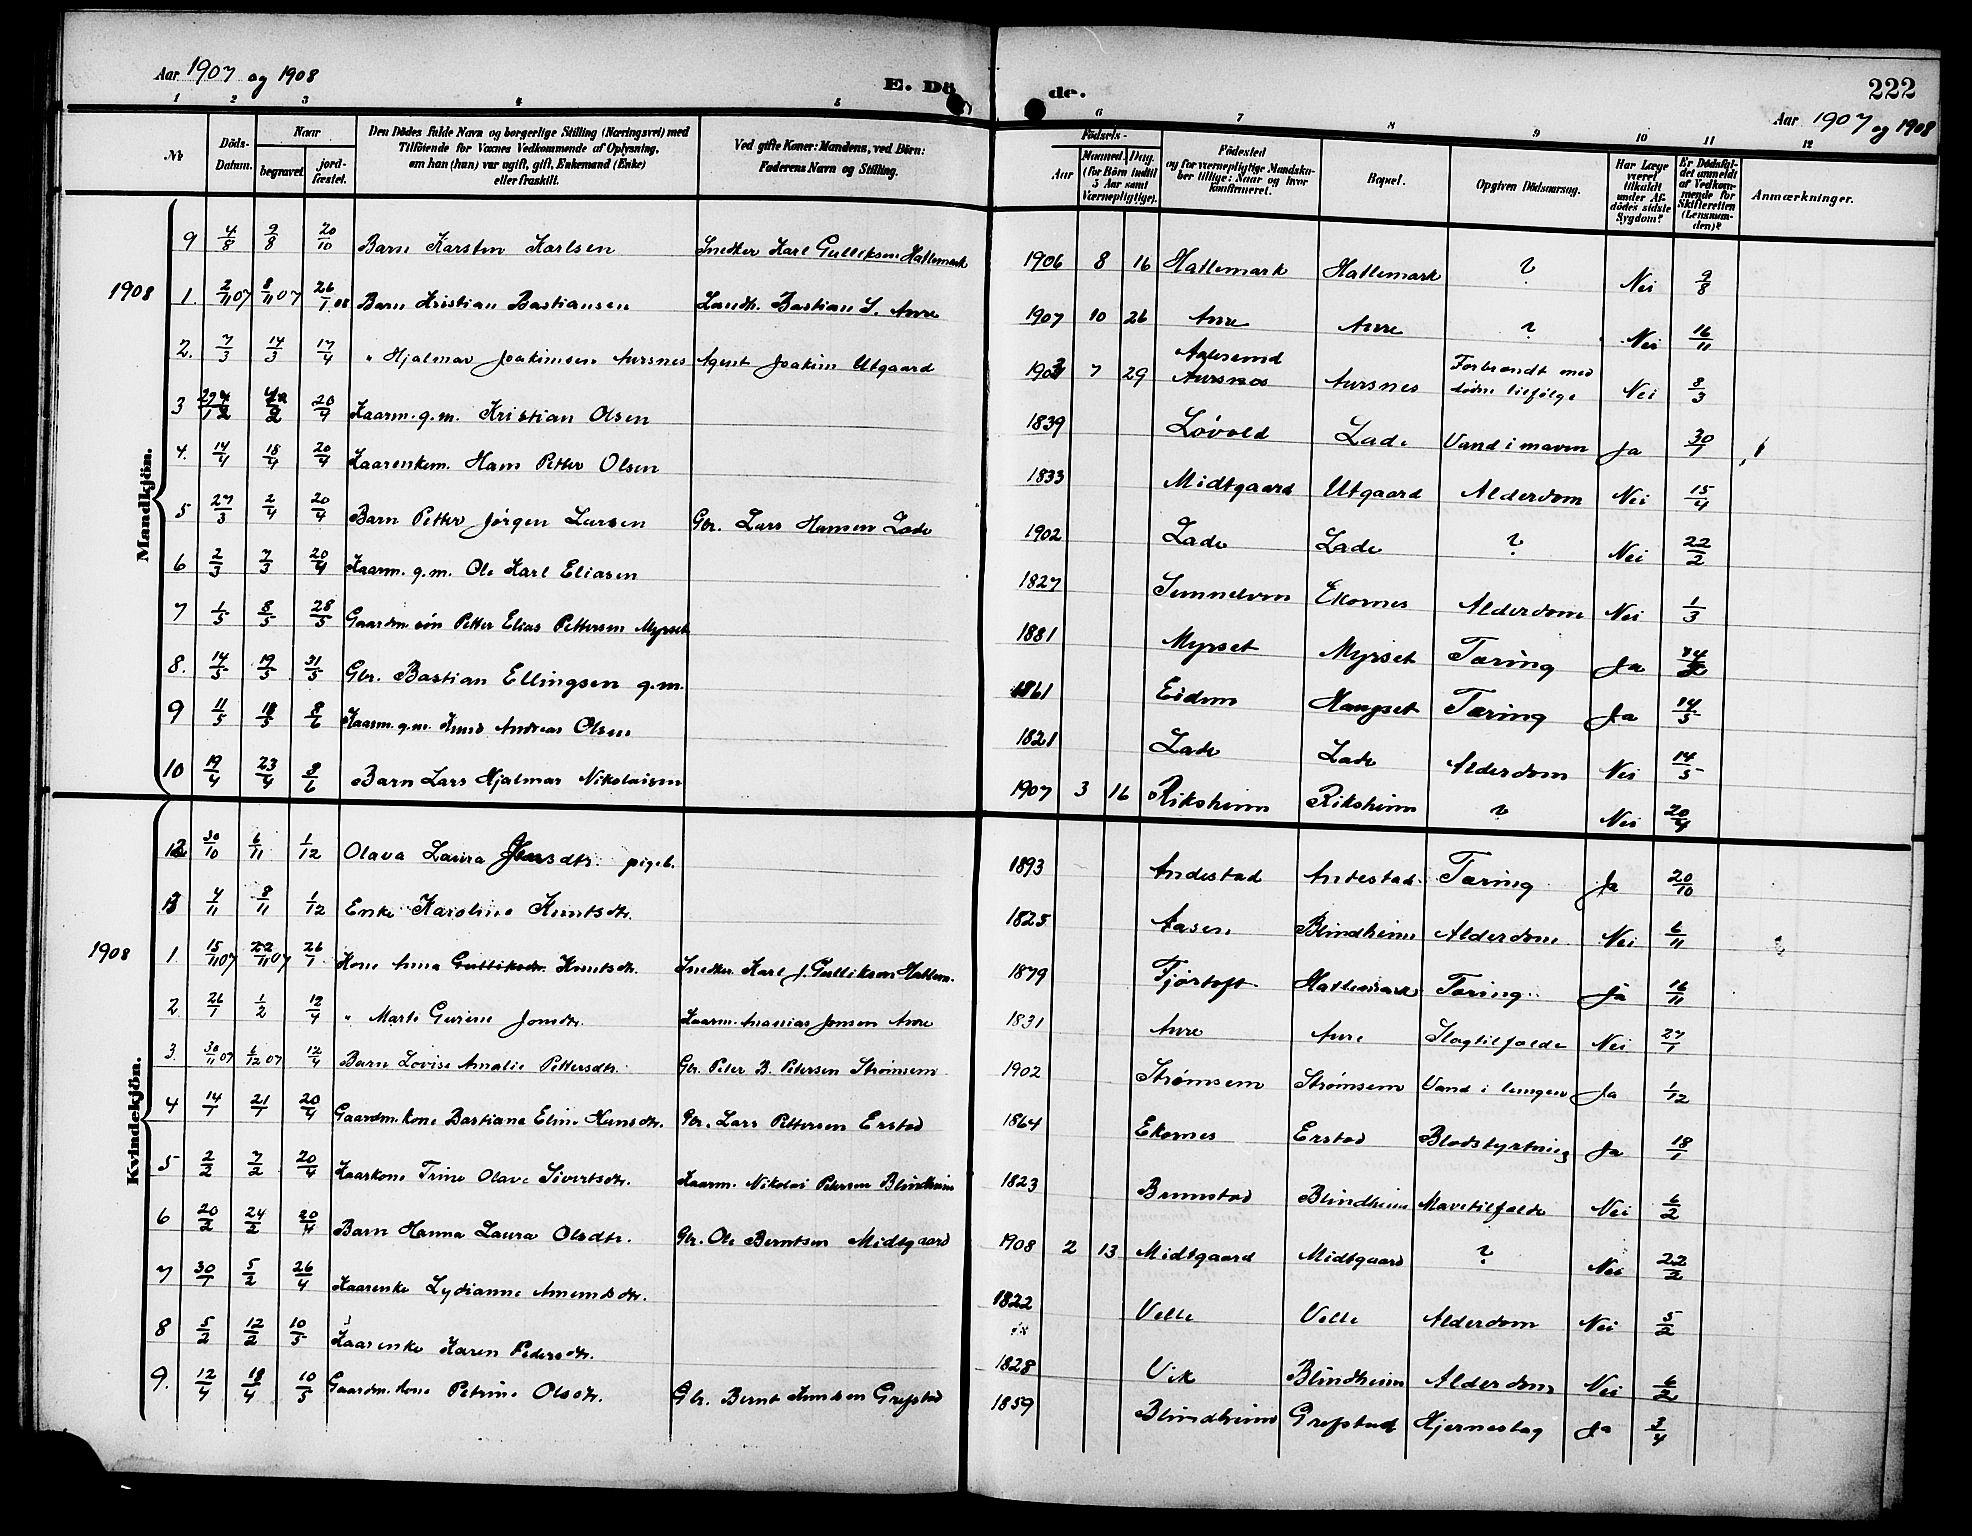 Aar 1907 og 1908
E. Döde.
222
Aar 1907 og 1908
1 2 3 4 5 6 7 8 9 10 11 12
No
Döds-Datum.
Naar
begravet.
jord-fæstet.
Den Dödes fulde Navn og borgerlige Stilling (Næringsvei) med
Tilföiende for Voxnes Vedkommende af Oplysning,
om han (hun) var ugift, gift, Enkemand (Enke)
eller fraskilt.
Ved gifte Koner: Mandens, ved Börn:
Faderens Navn og Stilling.
Födsels-
Aar
Maaned. Dag.
(for Börn indtil
5 Aar samt
Værnepligtige).
Födested
og for værnepligtige Mandskaber tillige: Naar og hvor
konfirmeret.
Bopæl.
Opgiven Dödsaarsag.
Har Læge
været
tilkaldt
under Afdödes sidste
Sygdom?
Er Dödsfaldet anmeldt
af Vedkommende for
Skifteretten
(Lensmanden)?
Anmærkninger.
Mandkjön.
9 4/8 9/8 20/10 Barn Karsten Karlsen Snedker Karl Gulliksen Hattemark 1906 8 16 Hattemark Hattemark ? Nei 9/8
1908 1. 2/11 07 8/11 07 26/1 08 Barn Kristian Bastiansen Landh. Bastian S. Aure 1907 10 26 Aure Aure ? Nei 16/11
2. 7/3 14/3 17/4 " Hjalmar Joakimsen Aursnes Agent Joakim Utgaard 7 29 Aalesund Aursnes Aursnes Forbrændt med døden tilfølge Nei 8/3
3 20/4 Kaarm. g.m. Kristian Olsen 1839 Løvold Lade Vand i maven Ja 30/1
4. 14/4 18/4 20/4 Kaarenkem. Hans Petter Olsen 1833 Midtgaard Utgaard Alderdom Nei 15/4
5 27/3 2/4 20/4 Barn Petter Jørgen Larsen Gbr. Lars Hansen Lade 1902 Lade Lade ? Nei 22/2
6 2/3 7/3 20/4 Kaarm. g.m. Ole Karl Eliasen 1827 Sunnelven Ekornes Alderdom Nei 1/3
7 1/5 8/5 28/5 Gaardm. søn Petter Elias Pettersen Myrset 1881 Myrset Myrset Tæring Ja
8. 14/5 19/5 31/5 Gbr. Bastian Ellingsen g.m. 1861 Eidem Haugset Tæring Ja 14/5
9 11/5 18/5 8/6 Kaarm. g.m. Knud Andreas Olsen 1821 Lade Lade Alderdom Nei 14/5
10 19/4 23/4 8/6 Barn Lars Hjalmar Nikolaisen 1907 3 16 Riksheim Riksheim ? Nei 20/4
Kvindekjön.
12 30/10 6/11 1/12 Olava Laura Jensdtr. pigeb. 1893 Andestad Andestad Tæring Ja 20/10
13 4/11 8/11 1/12 Enke Karoline Knutsdtr. 1825 Aasen Blindheim Alderdom Nei 6/11
1908 1 15/11 07 22/11 07 26/1 Kone Anna Gulliksdtr. Knutsdtr. Snedker Karl J. Gulliksen Hattem. 1879 Fjørtoft Hattemark Tæring Ja 16/11
2 26/1 1/2 12/4 " Marte Gurine Jonsdtr. Kaarm. Ananias Jonsen Aure 1831 Aure Aure Slagtilfælde Nei 27/1
3. 30/11 07 6/12 07 12/4 Barn Lovise Amalie Pettersdtr. Gbr. Peter B. Petersen Strømsem 1902 Strømsem Strømsem Vand i lungen Ja 1/12
4 14/1 21/1 20/4 Gaardm. kone Bastiane Eline Hansdtr. Gbr. Lars Pettersen Erstad 1864 Ekornes Erstad Blodstyrtning Ja 18/1
5 2/2 7/2 20/4 Kaarkone Trine Olave Sivertsdtr. Kaarm. Nikolai Petersen Blindheim 1823 Brunstad Blindheim Mavetilfælde Nei 6/2
6 20/2 24/2 20/4 Barn Hanna Laura Olsdtr. Gbr. Ole Berntsen Midtgaard 1908 2 13 Midtgaard Midtgaard ? Nei 22/2
7 30/1 5/2 26/4 Kaarenke Lydianne Amundsdtr. 1822 Velle Velle Alderdom Nei 5/2
8 5/2 12/2 10/5 Kaarenke Karen Pedersdtr. 1828 Vik Blindheim Alderdom Nei 6/2
9. 12/4 18/4 10/5 Gaardm. kone Petrine Olsdtr. Gbr. Bernt Knudsen Grepstad 1859 Blindheim Grepstad Hjerneslag Ja 3/4